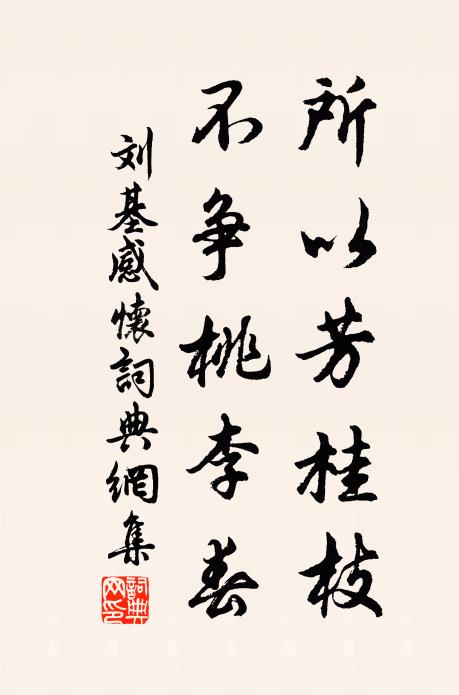 所以芳桂枝
不争桃李春
刘基感懷詞典網集
詞典网印